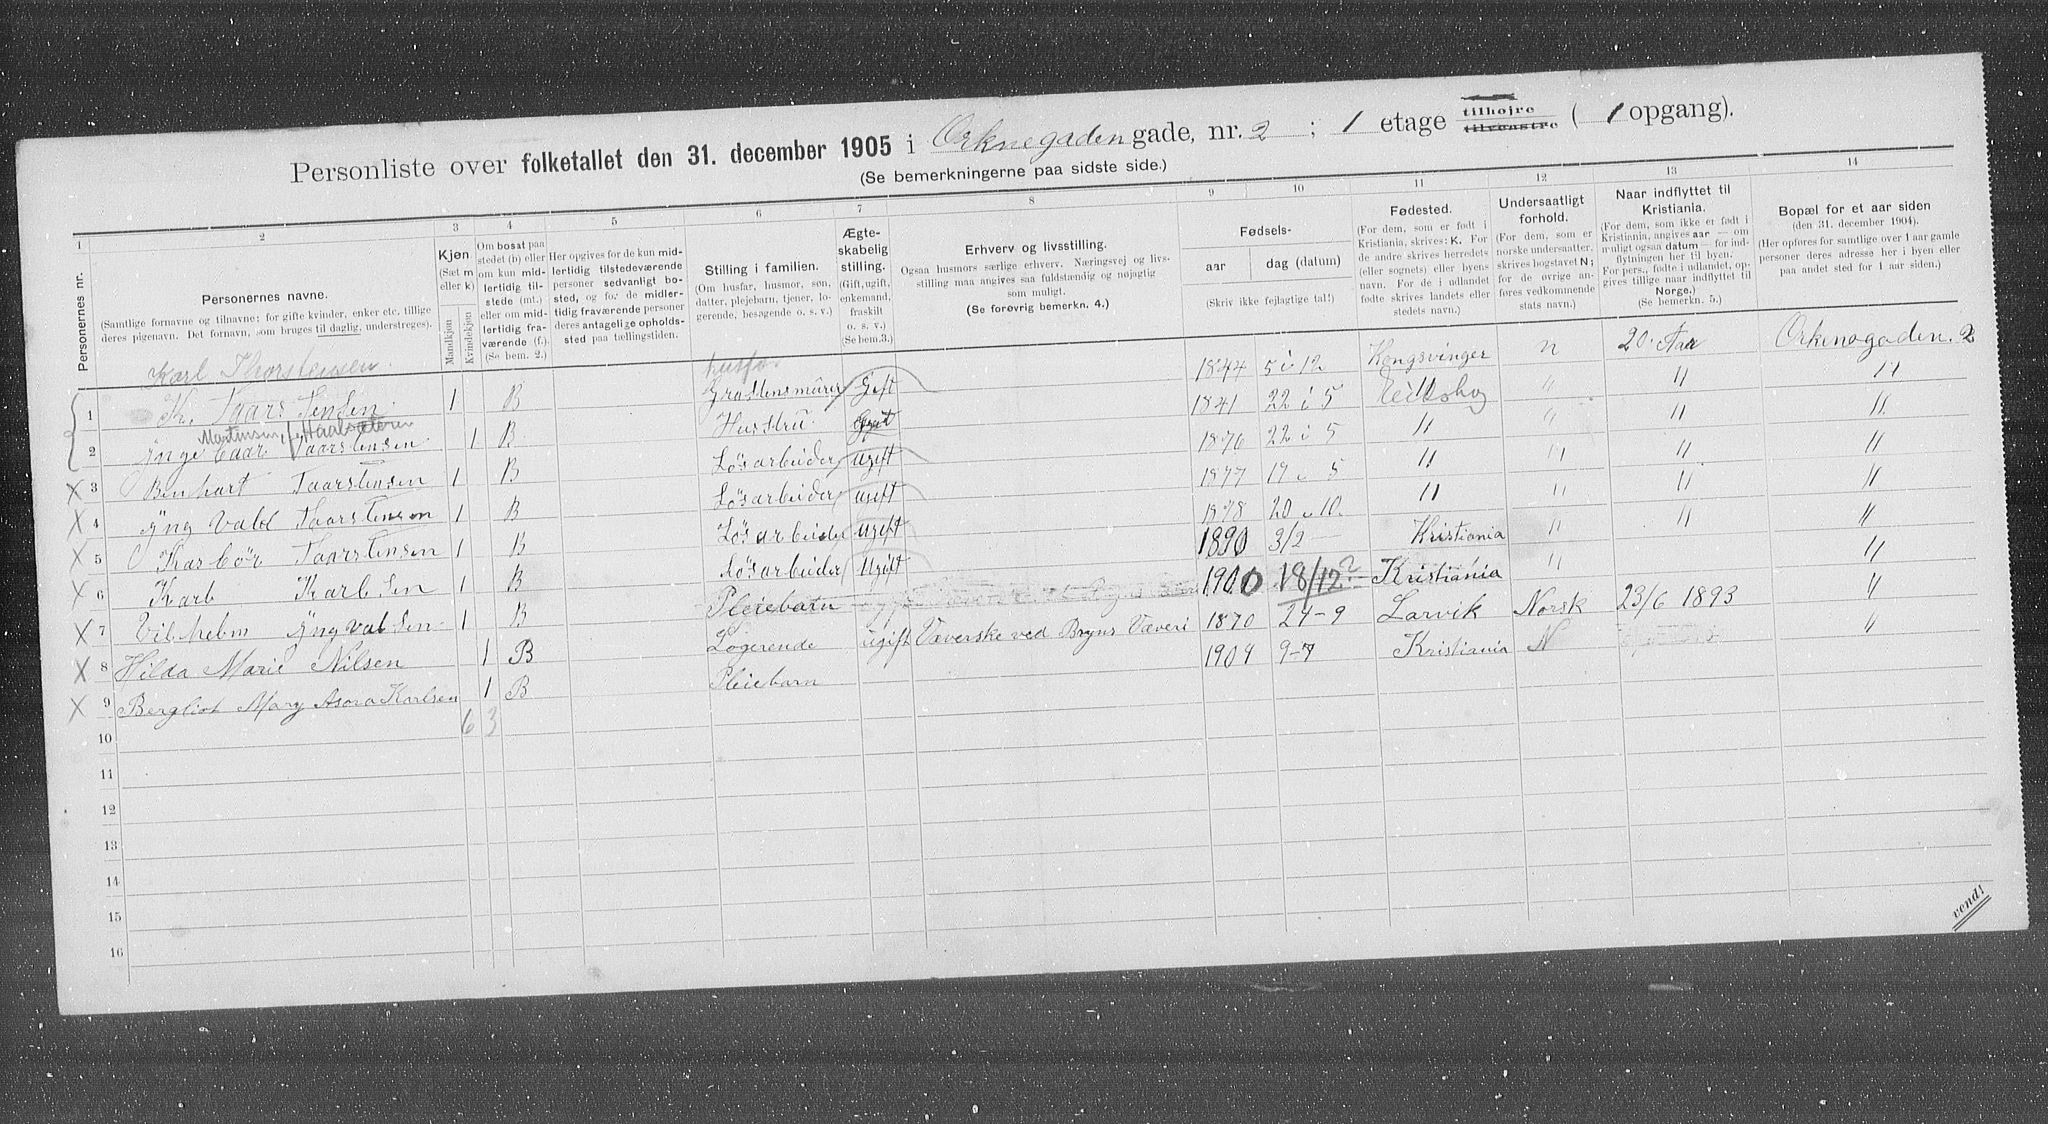 Personliste over folketallet den 31. december 1905 i Orknegaden gade, nr. 2 ; 1 etage tilhøjre tilvenstre ( 1 opgang).
(Se bemerkningerne paa sidste side.)
1 2 3 4 5 6 7 8 9 10 11 12 13 14
Personernes nr.
Personernes navne.
(Samtlige fornavne og tilnavne; for gifte kvinder, enker etc. tillige deres pigenavn. Det fornavn, som bruges til daglig, understreges).
Kjøn.
(Sæt m eller k)
Mandkjøn
Kvindekjøn
Om bosat paa stedet (b) eller om kun midlertidig tilstede (mt.) eller om midlertidig fraværende (f.) (Se bem. 2.)
Her opgives for de kun midlertidig tilstedeværende personer sedvanligt bosted, og for de midlertidig fraværende personer deres antagelige opholdssted paa tællingstiden.
Stilling i familien.
(Om husfar, husmor, søn, datter, plejebarn, tjener, logerende, besøgende o. s. v.)
Ægteskabelig stilling.
(Gift, ugift, enkemand, fraskilt o. s. v.)
(Se bem.3.)
Erhverv og livsstilling.
Ogsaa husmors særlige erhverv. Næringsvej og livsstilling maa angives saa fuldstændig og nøjagtig som muligt.
(Se forøvrig bemerkn. 4.)
Fødsels-
aar
dag (datum)
(Skriv ikke fejlagtige tal!)
Fødested.
(For dem, som er født i Kristiania, skrives: K. For de andre skrives herredets (eller sognets) eller byens navn. For de i udlandet fødte skrives landets eller stedets navn.)
Undersaatligt forhold.
(For dem, som er norske undersaatter, skrives bogstavet N; for de øvrige anføres vedkommende stats navn.)
Naar indflyttet til Kristiania.
(For dem, som ikke er født i Kristiania, angives aar — om muligt ogsaa datum — for indflytningen her til byen. For pers., fødte i udlandet, opgives tillige naar indflyttet til Norge.)
(Se bemerkn. 5.)
Bopæl for et aar siden
(den 31. december 1904).
(Her opføres for samtlige over 1 aar gamle personer deres adresse her i byen eller paa andet sted for 1 aar siden.)
Karl Thorstensen husfa.
1 Taarstensen 1 B GraStensmürer Gift 1844 5 i 12 Kongsvinger n 20 Aar Orknegaden. 2
Martinsen, f.
2 Taarstensen 1 B Hustru Gift 1841 22 i 5 " " "
X 3 Benhart Taarstensen 1 B Løsarbeider ugift 1876 22 i 5 " " " "
X 4 Yng vald Taarstensen 1 B Løsarbeider ugift 1877 17 i 5 " " " "
X 5 Taarstensen 1 B Løsarbeider ugift 1878 20 i 10. " " " "
X 6 Karl Karlsen 1 B Løsarbeider Ugift 1890 3/2 — Kristiania " " "
X 7 Vilhelm Yngvalsen 1 B Pleiebarn 1900 18/12 ? Kristiania " "
X 8 Hilda Marie Nilsen 1 B Logerende ugift Væverske ved Bryns Væveri 1870 24-9 Larvik Norsk 23/6 1893 "
X 9 Bergliot Mary Asora Karlsen 1 B Pleiebarn 1904 9-7 Kristiania N "
10 6 3
11
12
13
14
15
16
vend!